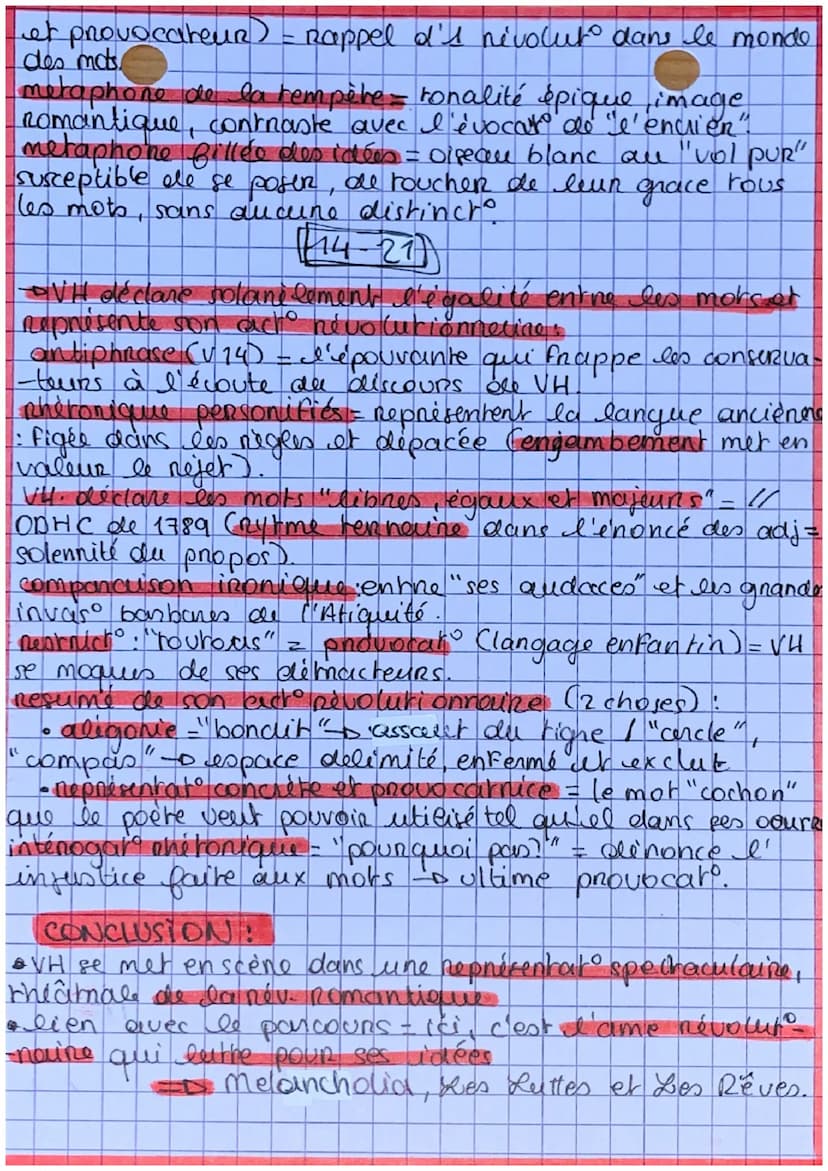 et provocateur) = rappel d'1 révolut° dans le monde
des mots.
métaphore de la tempête = tonalité épique, image
romantique, contraste avec l'évocat° de "l'encrier".
métaphore fillée des idées = oiseau blanc au "vol pur"
susceptible de se poser, de toucher de leur grace tous
les mots, sans aucune distinct°.
14-21
→VH déclare solanèlement l'égalité entre les mots et
représente son act° révolutionnetire:
antiphrase (V14) = l'épouvante qui frappe les conserva-
-teurs à l'écoute du discours de VH.
rhétorique personifiés = représentent la langue anciènne
: figée dans les règles et dépacée (enjambement met en
valeur le rejet).
VH. déclare les mots "libres, égaux et majeurs" = //
DDHC de 1789 (rytme ternetire dans l'énoncé des adj =
solennité du propos).
comparaison ironique: entre "ses audaces" et les grande
invas° barbares de l'Atiquité.
restrict°: "toutous" = provocat° (langage enfantin) = VH
se moques de ses détracteurs.
résumé de son act° révolutionnaire (2 choses) :
• aligorie = "bondit" → assaut du tigre / "cercle",
"compas" → espace délimité, enfermé et exclut
• représentat° concrète et provocatrice = le mot "cochon"
que le poète veut pouvoir utilisé tel qu'el dans ses oeuvre
intérogat° rhétorique = "pourquoi pas?" = dénonce l'
injustice faite aux mots → ultime provocat°.
CONCLUSION :
• VH se met en scène dans une représentat° spectaculaire,
théâtrale de la rév. romantique
• lien avec le parcours = ici, c'est l'ame révolut°-
-naire qui lutte pour ses idées
⇒ Melancholia, Les Luttes et Les Rêves.